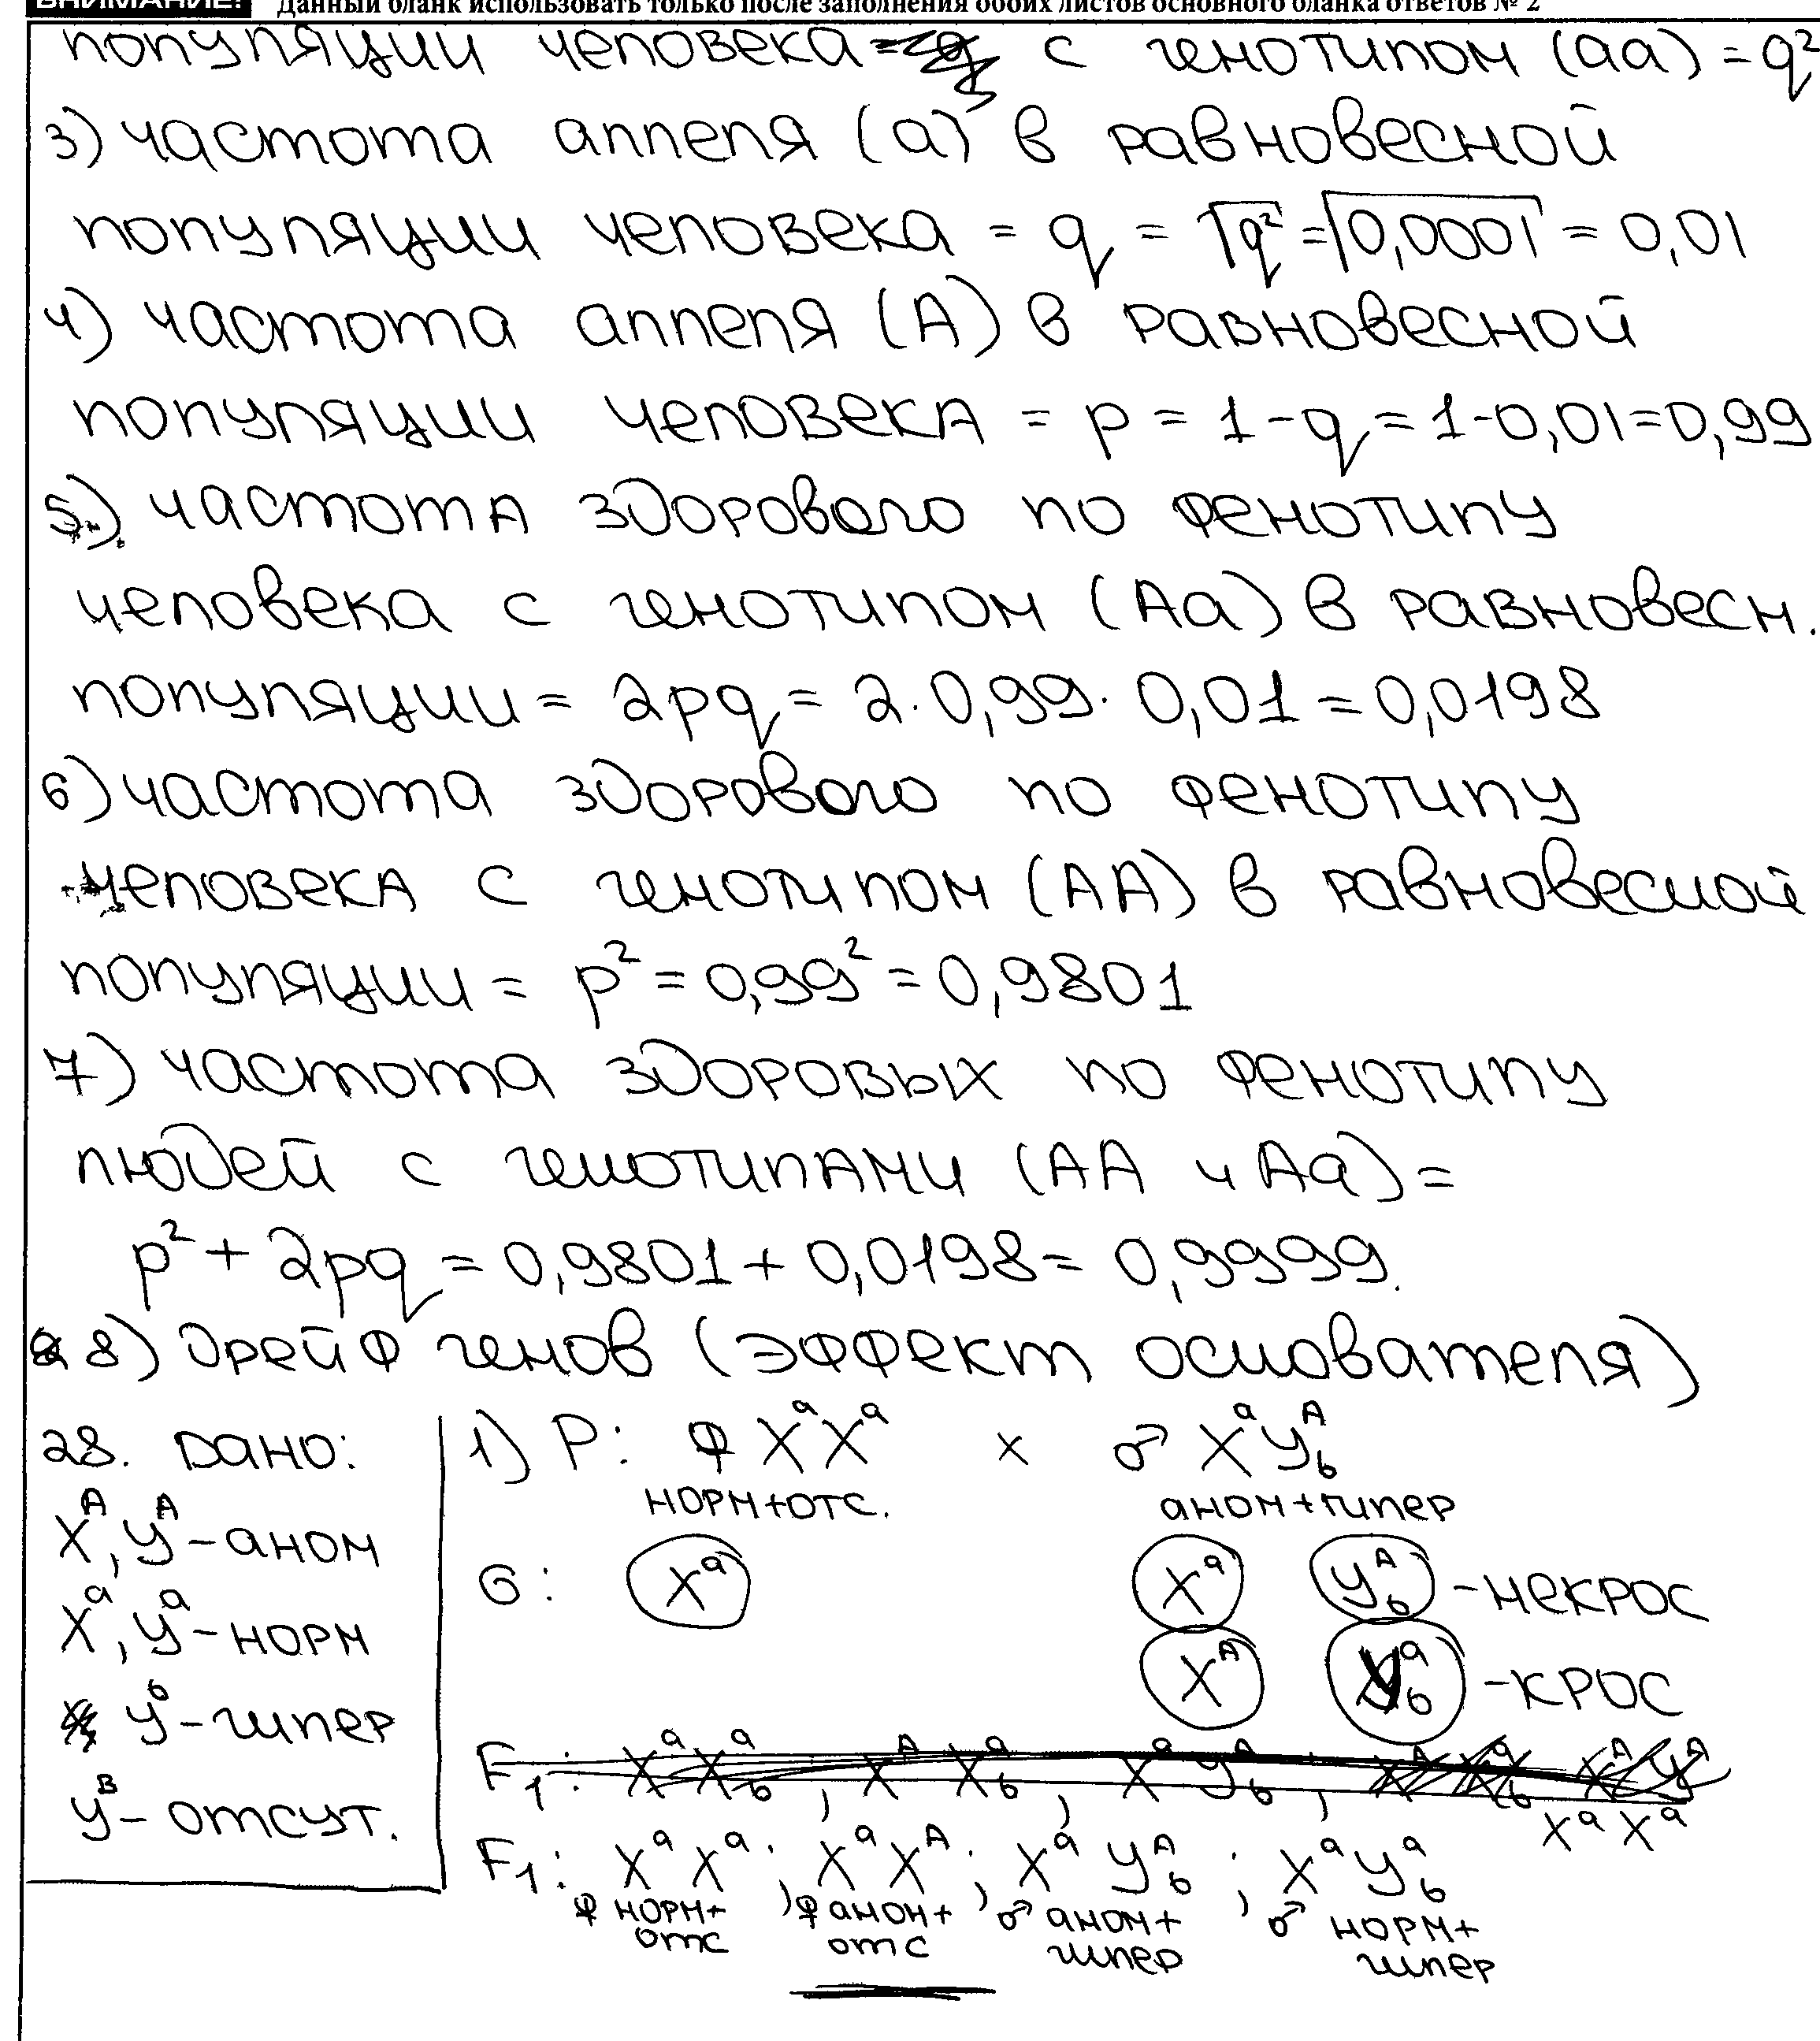 ВНИМАНИЕ! Данный бланк использовать только после заполнения обоих листов основного бланка ответов № 2
популяции человека = с генотипом (аа) = q²
3) частота аллеля (а) в равновесной
популяции человека = q = √q² = √0,0001 = 0,01
4) частота аллеля (А) в равновесной
популяции человека = p = 1-q = 1-0,01=0,99
5) частота здорового по фенотипу
человека с генотипом (Аа) в равновесн.
популяции = 2pq = 2·0,99·0,01=0,0198
6) частота здорового по фенотипу
человека с генотипом (АА) в равновесной
популяции = p² = 0,99² = 0,9801
7) частота здоровых по фенотипу
людей с генотипами (АА и Аа) =
p² + 2pq = 0,9801 + 0,0198 = 0,9999.
8) дрейф генов (эффект основателя)
28. Дано:
Xᴬ, Yᴬ - аном
Xᵃ, Yᵃ - норм
Yᵇ - гипер
Yᴮ - отсут.
1) P: ♀ XᵃXᵃ x ♂ XᵃYᴬb
норм+отс. аном+гипер
G: Xᵃ Xᵃ Yᴬb - некрос
Xᴬ Yᵃb - крос
F₁: XᵃXᵃb, XᴬXᵃb, XᵃYᴬb,
XᵃXᵃ
F₁: XᵃXᵃ; XᵃXᴬ; XᵃYᴬb; XᵃYᵃb
♀ норм+ , ♀ аном+ , ♂ аном+ , ♂ норм+
отс отс гипер гипер